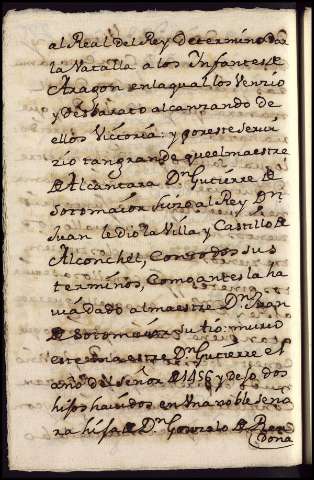 al Real del Rey Determino dar
la Vatalla a los Infantes de
Aragon en laqual los Venzio
y Desbarato alcanzando de
ellos Victoria: y por este servi
zio tan grande que el maestre
de Alcantara Dn Gutierre de
Sotomaior hizo al Rey Dn
Juan le Dio la Villa, y Castillo de
Alconchel, Con todos sus
terminos, Como antes la ha
via dado al maestre Dn Juan
de Sotomaior su tio: murio
este maestre Dn Gutierre el
año del señor de 1456 y dejo dos
hijos havidos en Una noble seño
ra hija de Dn Gonzalo de Ron
dona